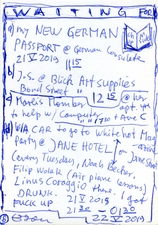 WAITING FOR
a) my NEW GERMAN
PASSPORT @ German Consulate
21 V 2013 11:15
b) J.S. @ Blick Art Supplies
Bond Street 12
c) Mark's Member
to help w/ Computer
d) WA CAR to go to White hot Mar
party @ JANE HOTEL Jane Street
(every Tuesday, Nash Becker,
Filip Wolak (Air plane lessons)
Linus Coraggio there. I got
DRUNK. 21 V 2013
FUCK UP 21:30 - 01:30
22 V 2013